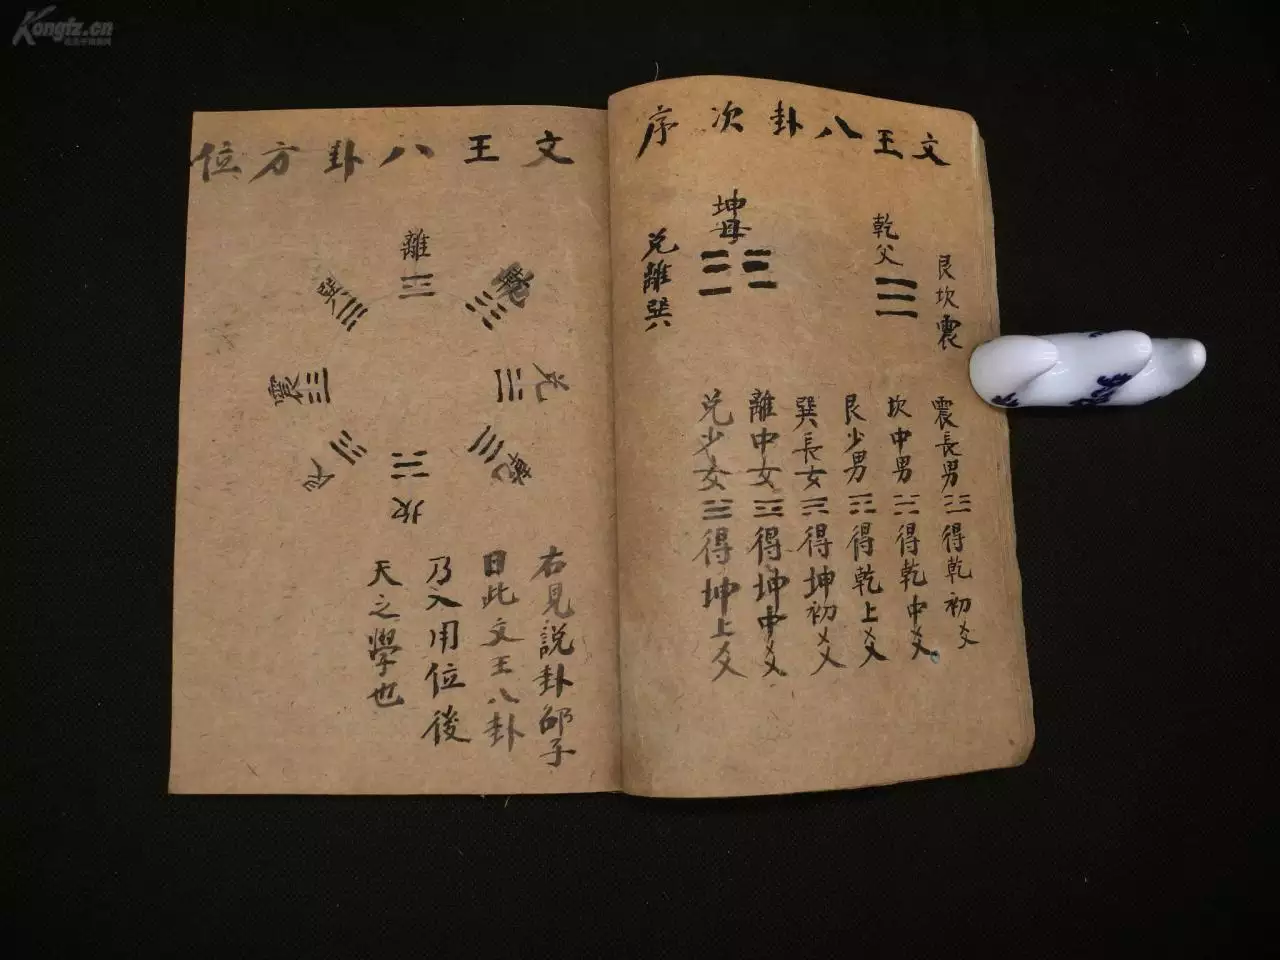 Kongfz.cn
文王八卦次序
乾父
坤母
艮坎震
兌離巽
震長男☳得乾初爻
坎中男☵得乾中爻
艮少男☶得乾上爻
巽長女☴得坤初爻
離中女☲得坤中爻
兌少女☱得坤上爻
文王八卦方位
離
兌
乾
坎
震
巽
右見說卦邵子
曰此文王八卦
乃入用位後
天之學也